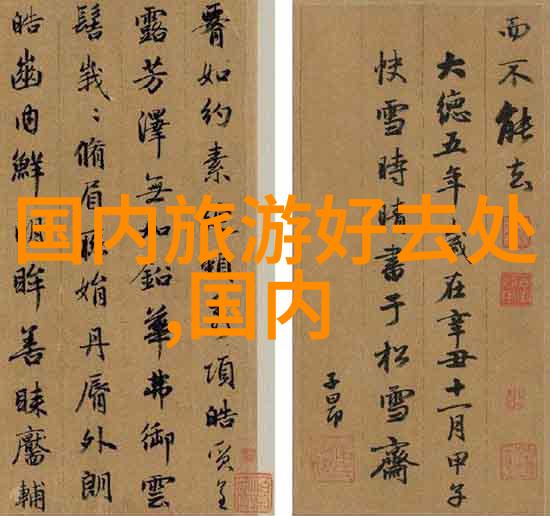 国内旅游好去处
,国内
如約素頸項皓質呈
露芳澤無加鉛華弗御雲
髻峩〻脩眉聯娟丹脣外朗
皓齒内鮮明眸善睞靨輔
而不能去
大德五年歲在辛丑十一月甲子
快雪時晴書于松雪齋
子昂